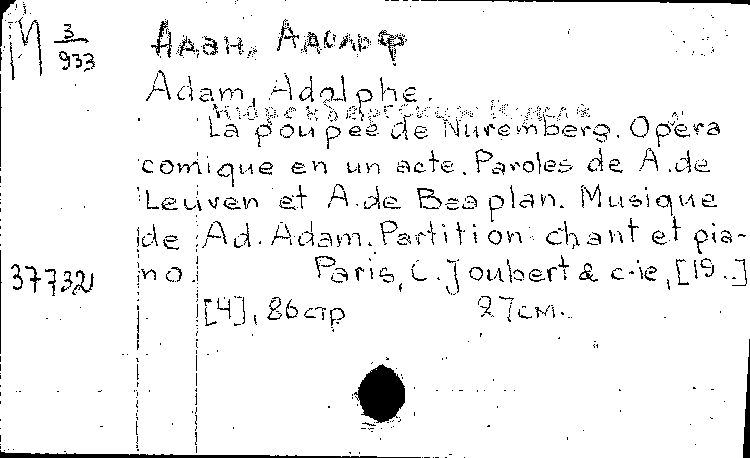 М 3/933 Адан, Адольф
Adam, Adolphe.
Нюренбергская кукла
La poupée de Nuremberg. Opéra
comique en un acte. Paroles de A. de
Leuven et A. de Beaplan. Musique
de Ad. Adam. Partition chant et pia-
no. Paris, C. Joubert & c-ie, [19..]
377321
[4], 86 стр 27 см.